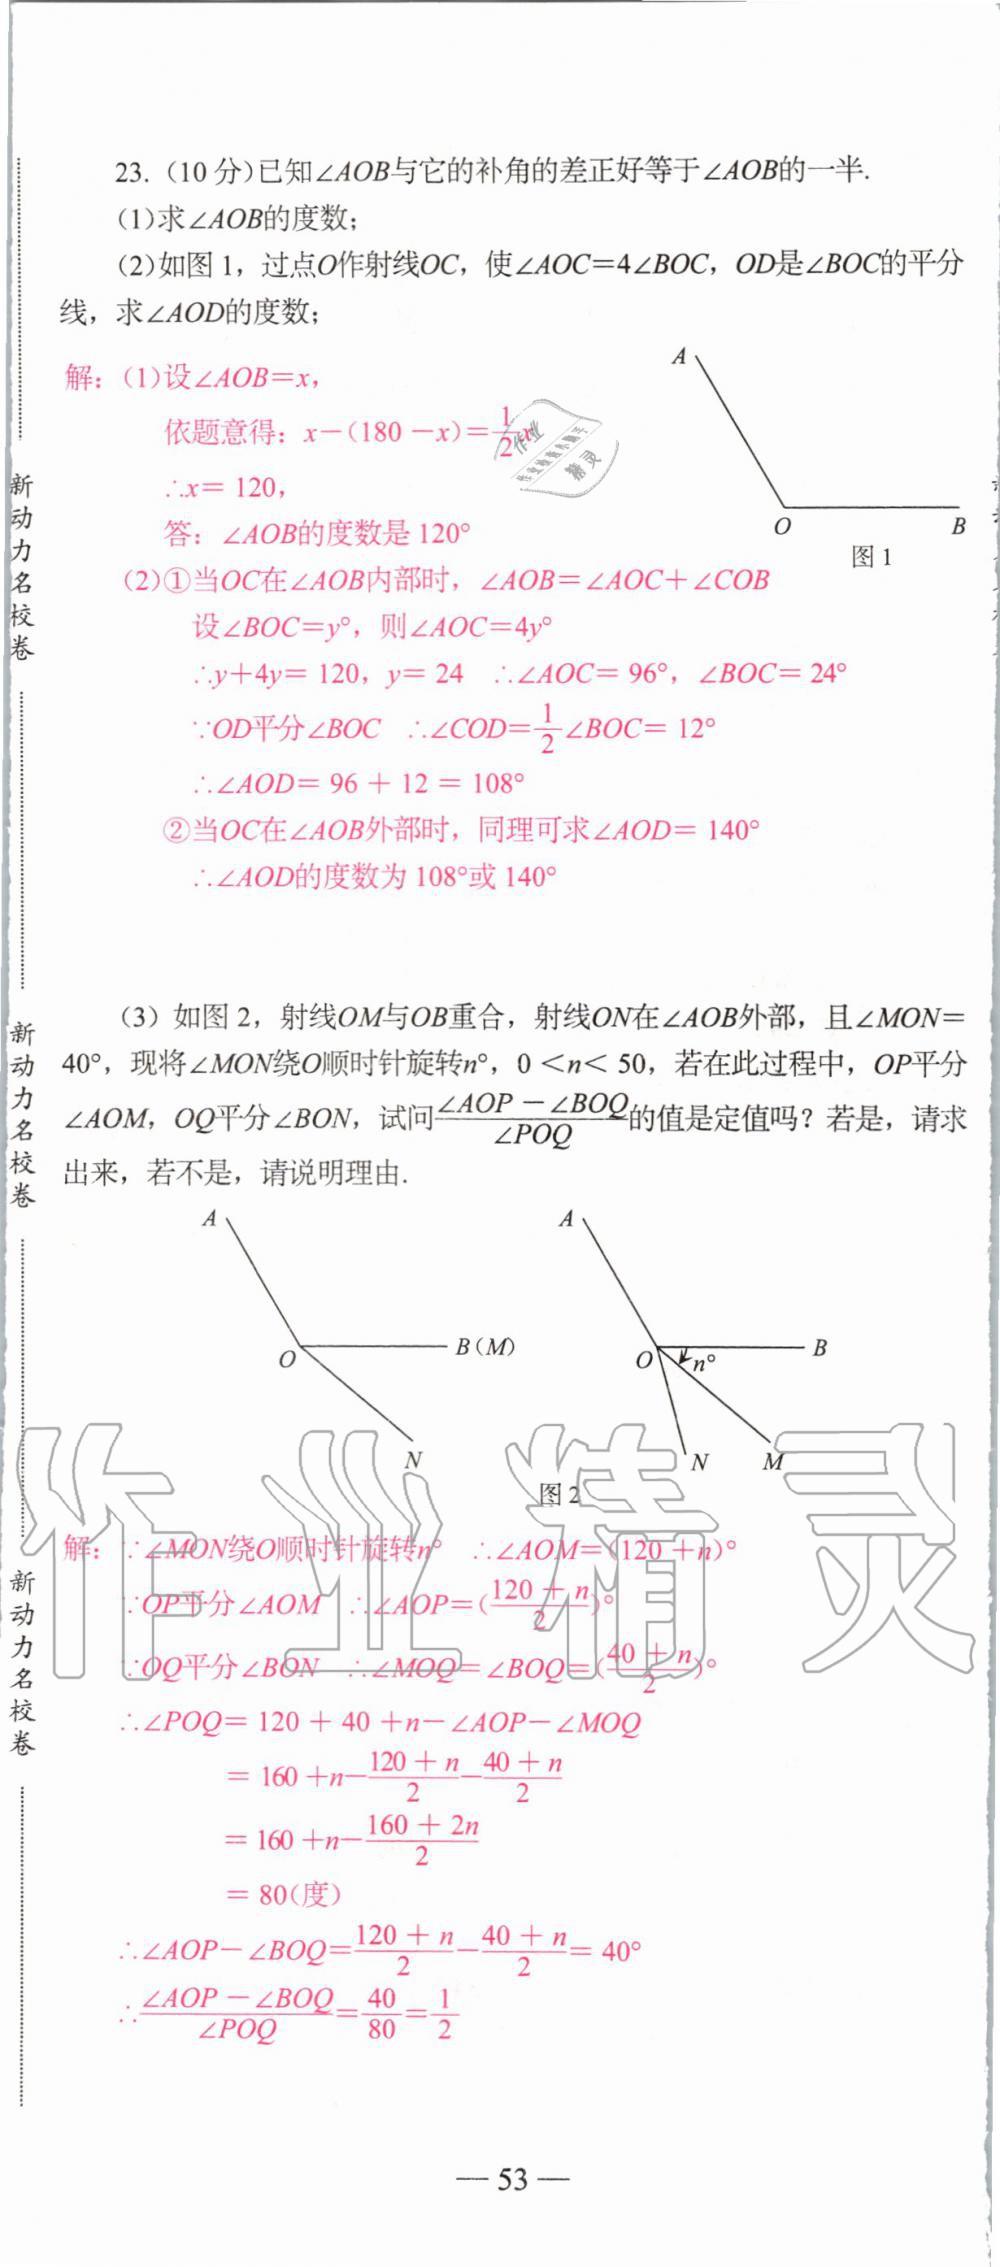 23.（10 分）已知∠AOB与它的补角的差正好等于∠AOB的一半.
(1)求∠AOB的度数；
(2)如图 1，过点O作射线OC，使∠AOC=4∠BOC，OD是∠BOC的平分
线，求∠AOD的度数；
解：(1)设∠AOB=x，
依题意得：x－(180－x)=1/2x
∴x= 120，
答：∠AOB的度数是 120°
A
O
B
图 1
(2)①当OC在∠AOB内部时，∠AOB=∠AOC+∠COB
设∠BOC=y°，则∠AOC=4y°
∴y+4y= 120，y= 24 ∴∠AOC= 96°，∠BOC= 24°
∵OD平分∠BOC ∴∠COD=1/2∠BOC= 12°
∴∠AOD= 96 + 12 = 108°
②当OC在∠AOB外部时，同理可求∠AOD= 140°
∴∠AOD的度数为 108°或 140°
(3) 如图 2，射线OM与OB重合，射线ON在∠AOB外部，且∠MON=
40°，现将∠MON绕O顺时针旋转n°，0 <n< 50，若在此过程中，OP平分
∠AOM，OQ平分∠BON，试问(∠AOP－∠BOQ)/∠POQ的值是定值吗？若是，请求
出来，若不是，请说明理由.
A
O
B(M)
N
A
O
n°
B
N
M
图 2
解：∵∠MON绕O顺时针旋转n° ∴∠AOM=(120 +n)°
∵OP平分∠AOM ∴∠AOP=((120 + n)/2)°
∵OQ平分∠BON ∴∠MOQ=∠BOQ=((40 + n)/2)°
∴∠POQ= 120 + 40 +n－∠AOP－∠MOQ
= 160 +n－(120 + n)/2－(40 + n)/2
= 160 +n－(160 + 2n)/2
= 80(度)
∴∠AOP－∠BOQ=(120 + n)/2－(40 + n)/2= 40°
∴(∠AOP－∠BOQ)/∠POQ=40/80=1/2
— 53 —
新动力名校卷
新动力名校卷
新动力名校卷
作业精灵
作业
精灵